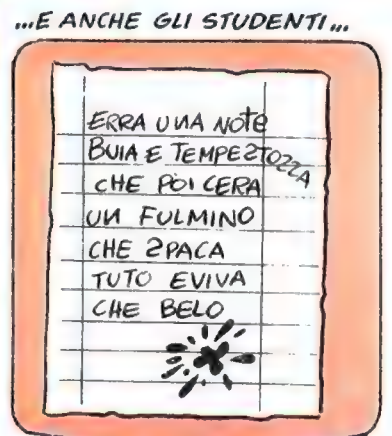 ...E ANCHE GLI STUDENTI...
ERRA UNA NOTE
BUIA E TEMPE2TOZZA
CHE POI CERA
UN FULMINO
CHE 2PACA
TUTO EVIVA
CHE BELO